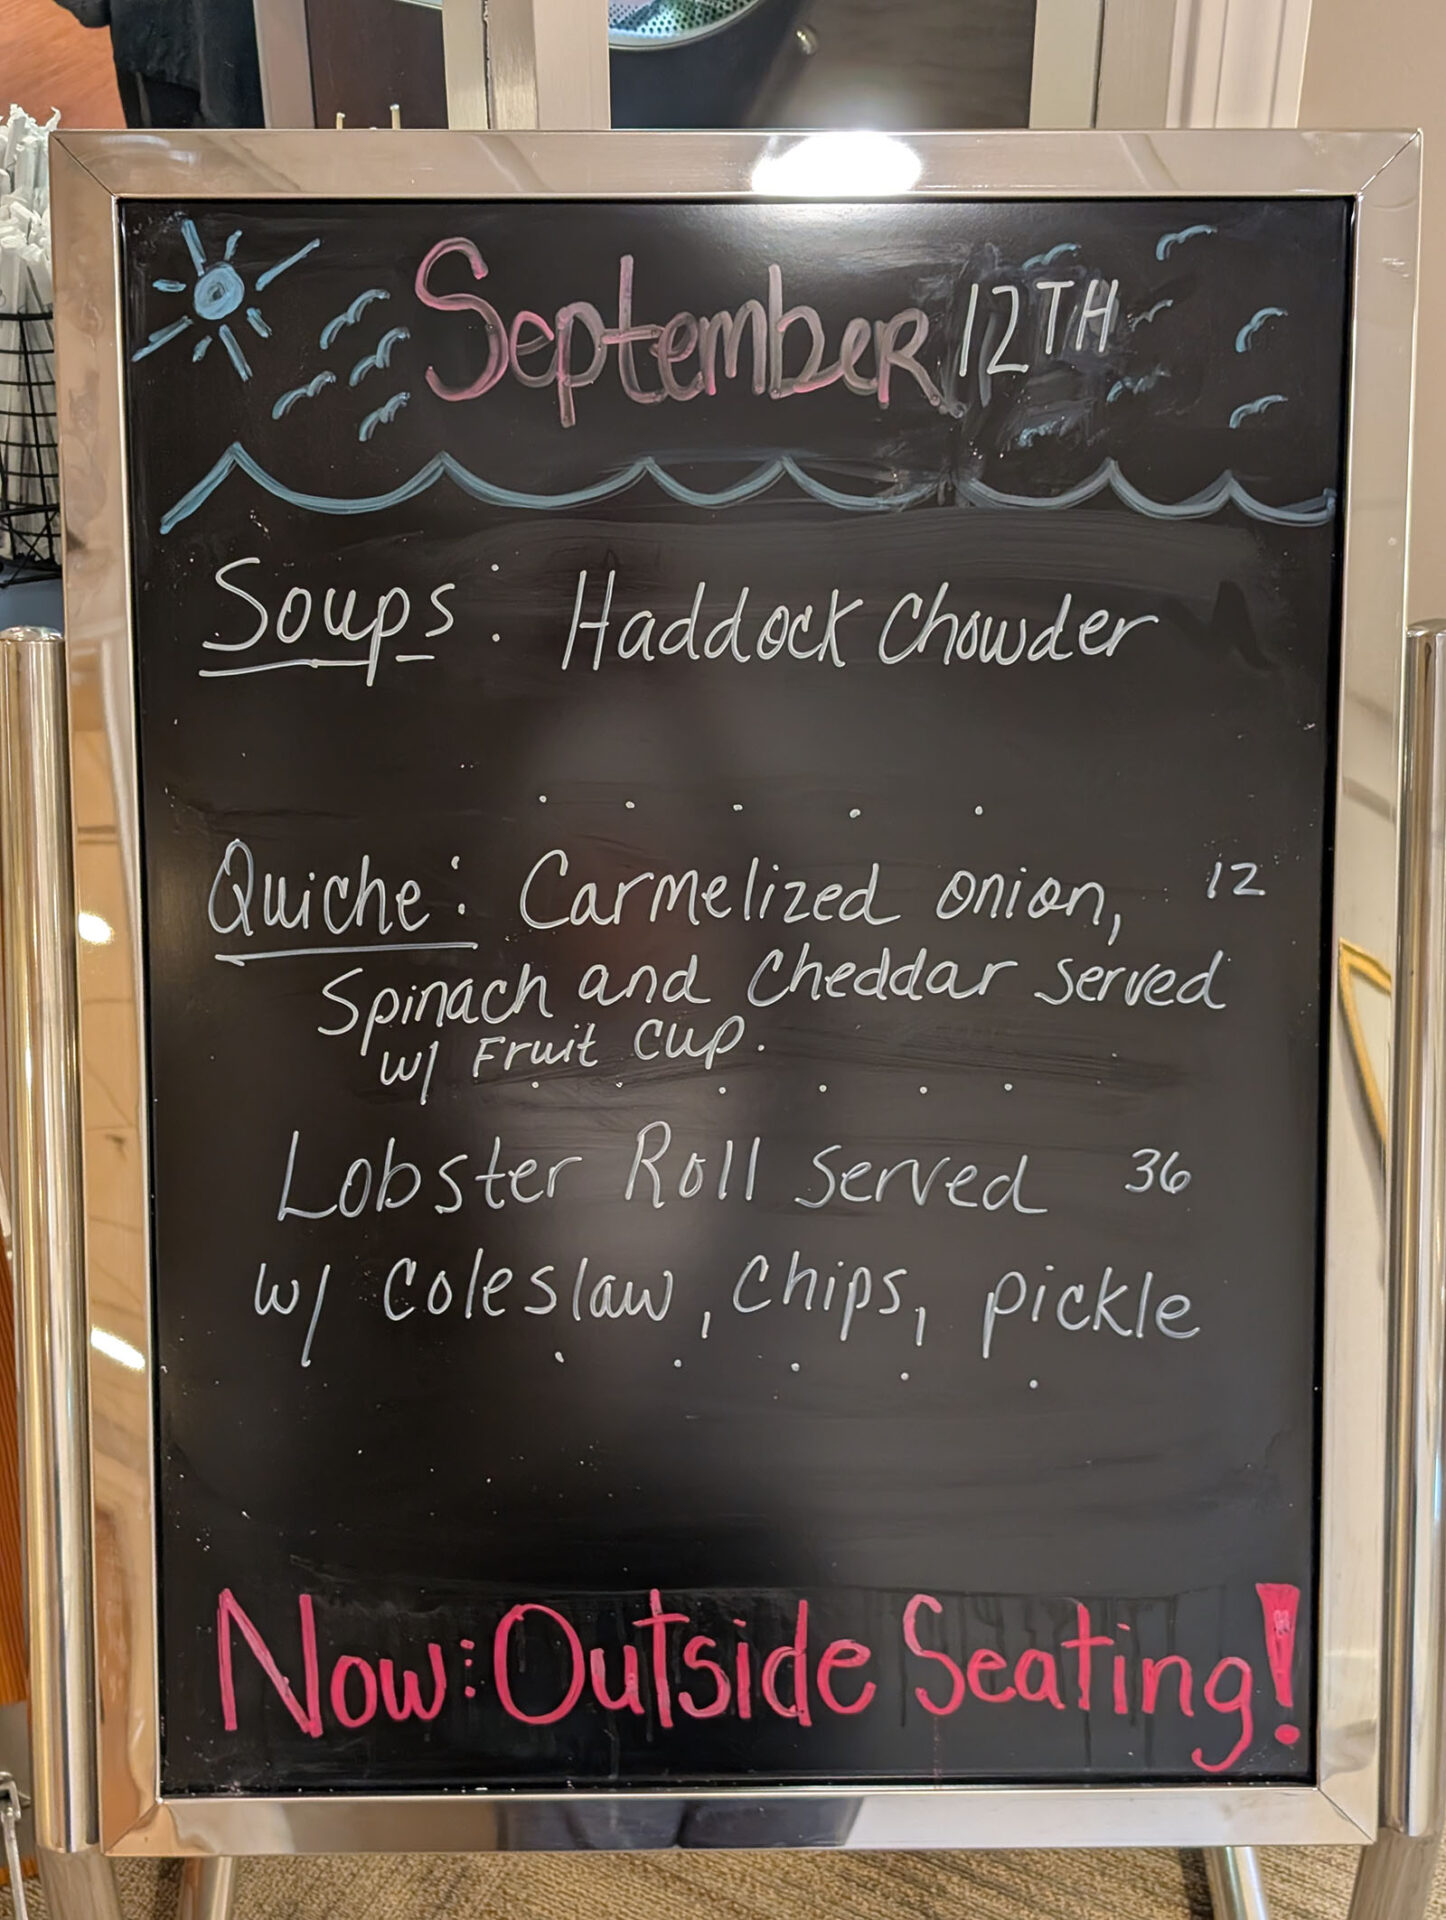 September 12TH
Soups: Haddock Chowder
Quiche: Carmelized onion, 12
Spinach and Cheddar served
w/ Fruit cup.
Lobster Roll served 36
w/ coleslaw, chips, pickle
Now: Outside Seating!